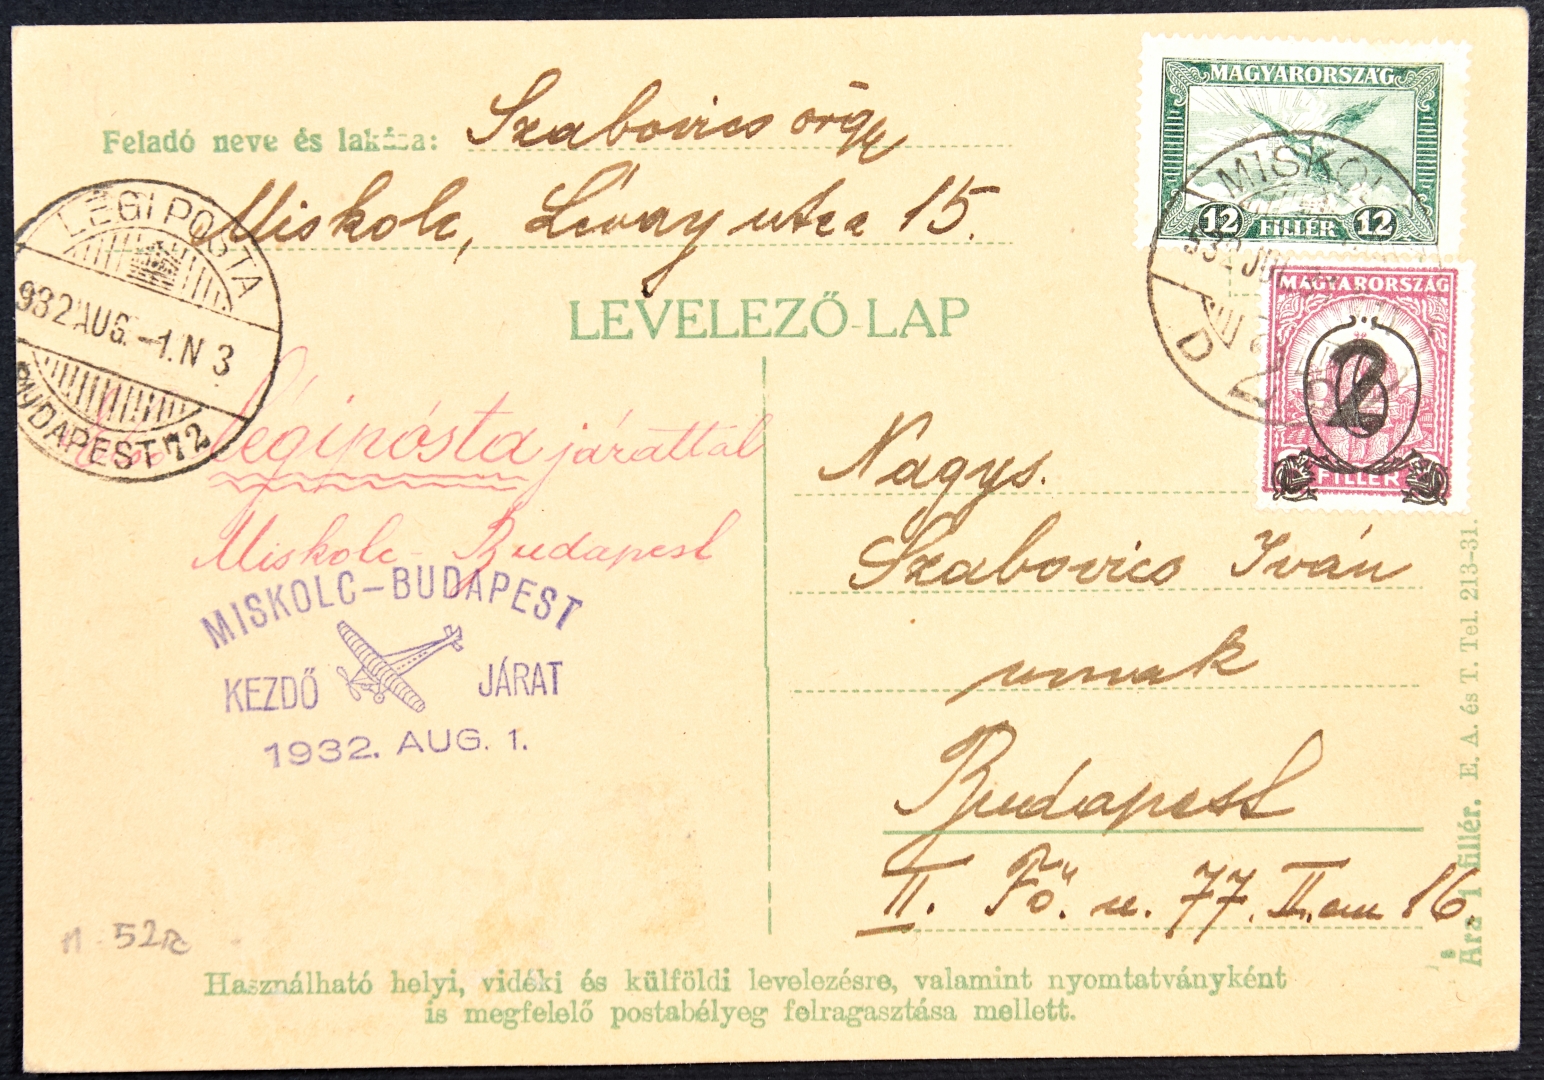 Feladó neve és lakása: Szabovics örgy
Miskolc, Lévay utca 15.
MAGYARORSZÁG
12 FILLÉR 12
MISKOLC
932 JUL
D
MAGYARORSZÁG
2
FILLÉR
LÉGI POSTA
932 AUG. -1. N 3
BUDAPEST 72
LEVELEZŐ-LAP
légipósta járattal
Miskolc - Budapest
MISKOLC-BUDAPEST
KEZDŐ JÁRAT
1932. AUG. 1.
Nagys.
Szabovics Iván
urnak
Budapest
II. Fő u. 77. II. em 16
Ára 1 fillér. E. A. és T. Tel. 213-31.
52
Használható helyi, vidéki és külföldi levelezésre, valamint nyomtatványként
is megfelelő postabélyeg felragasztása mellett.